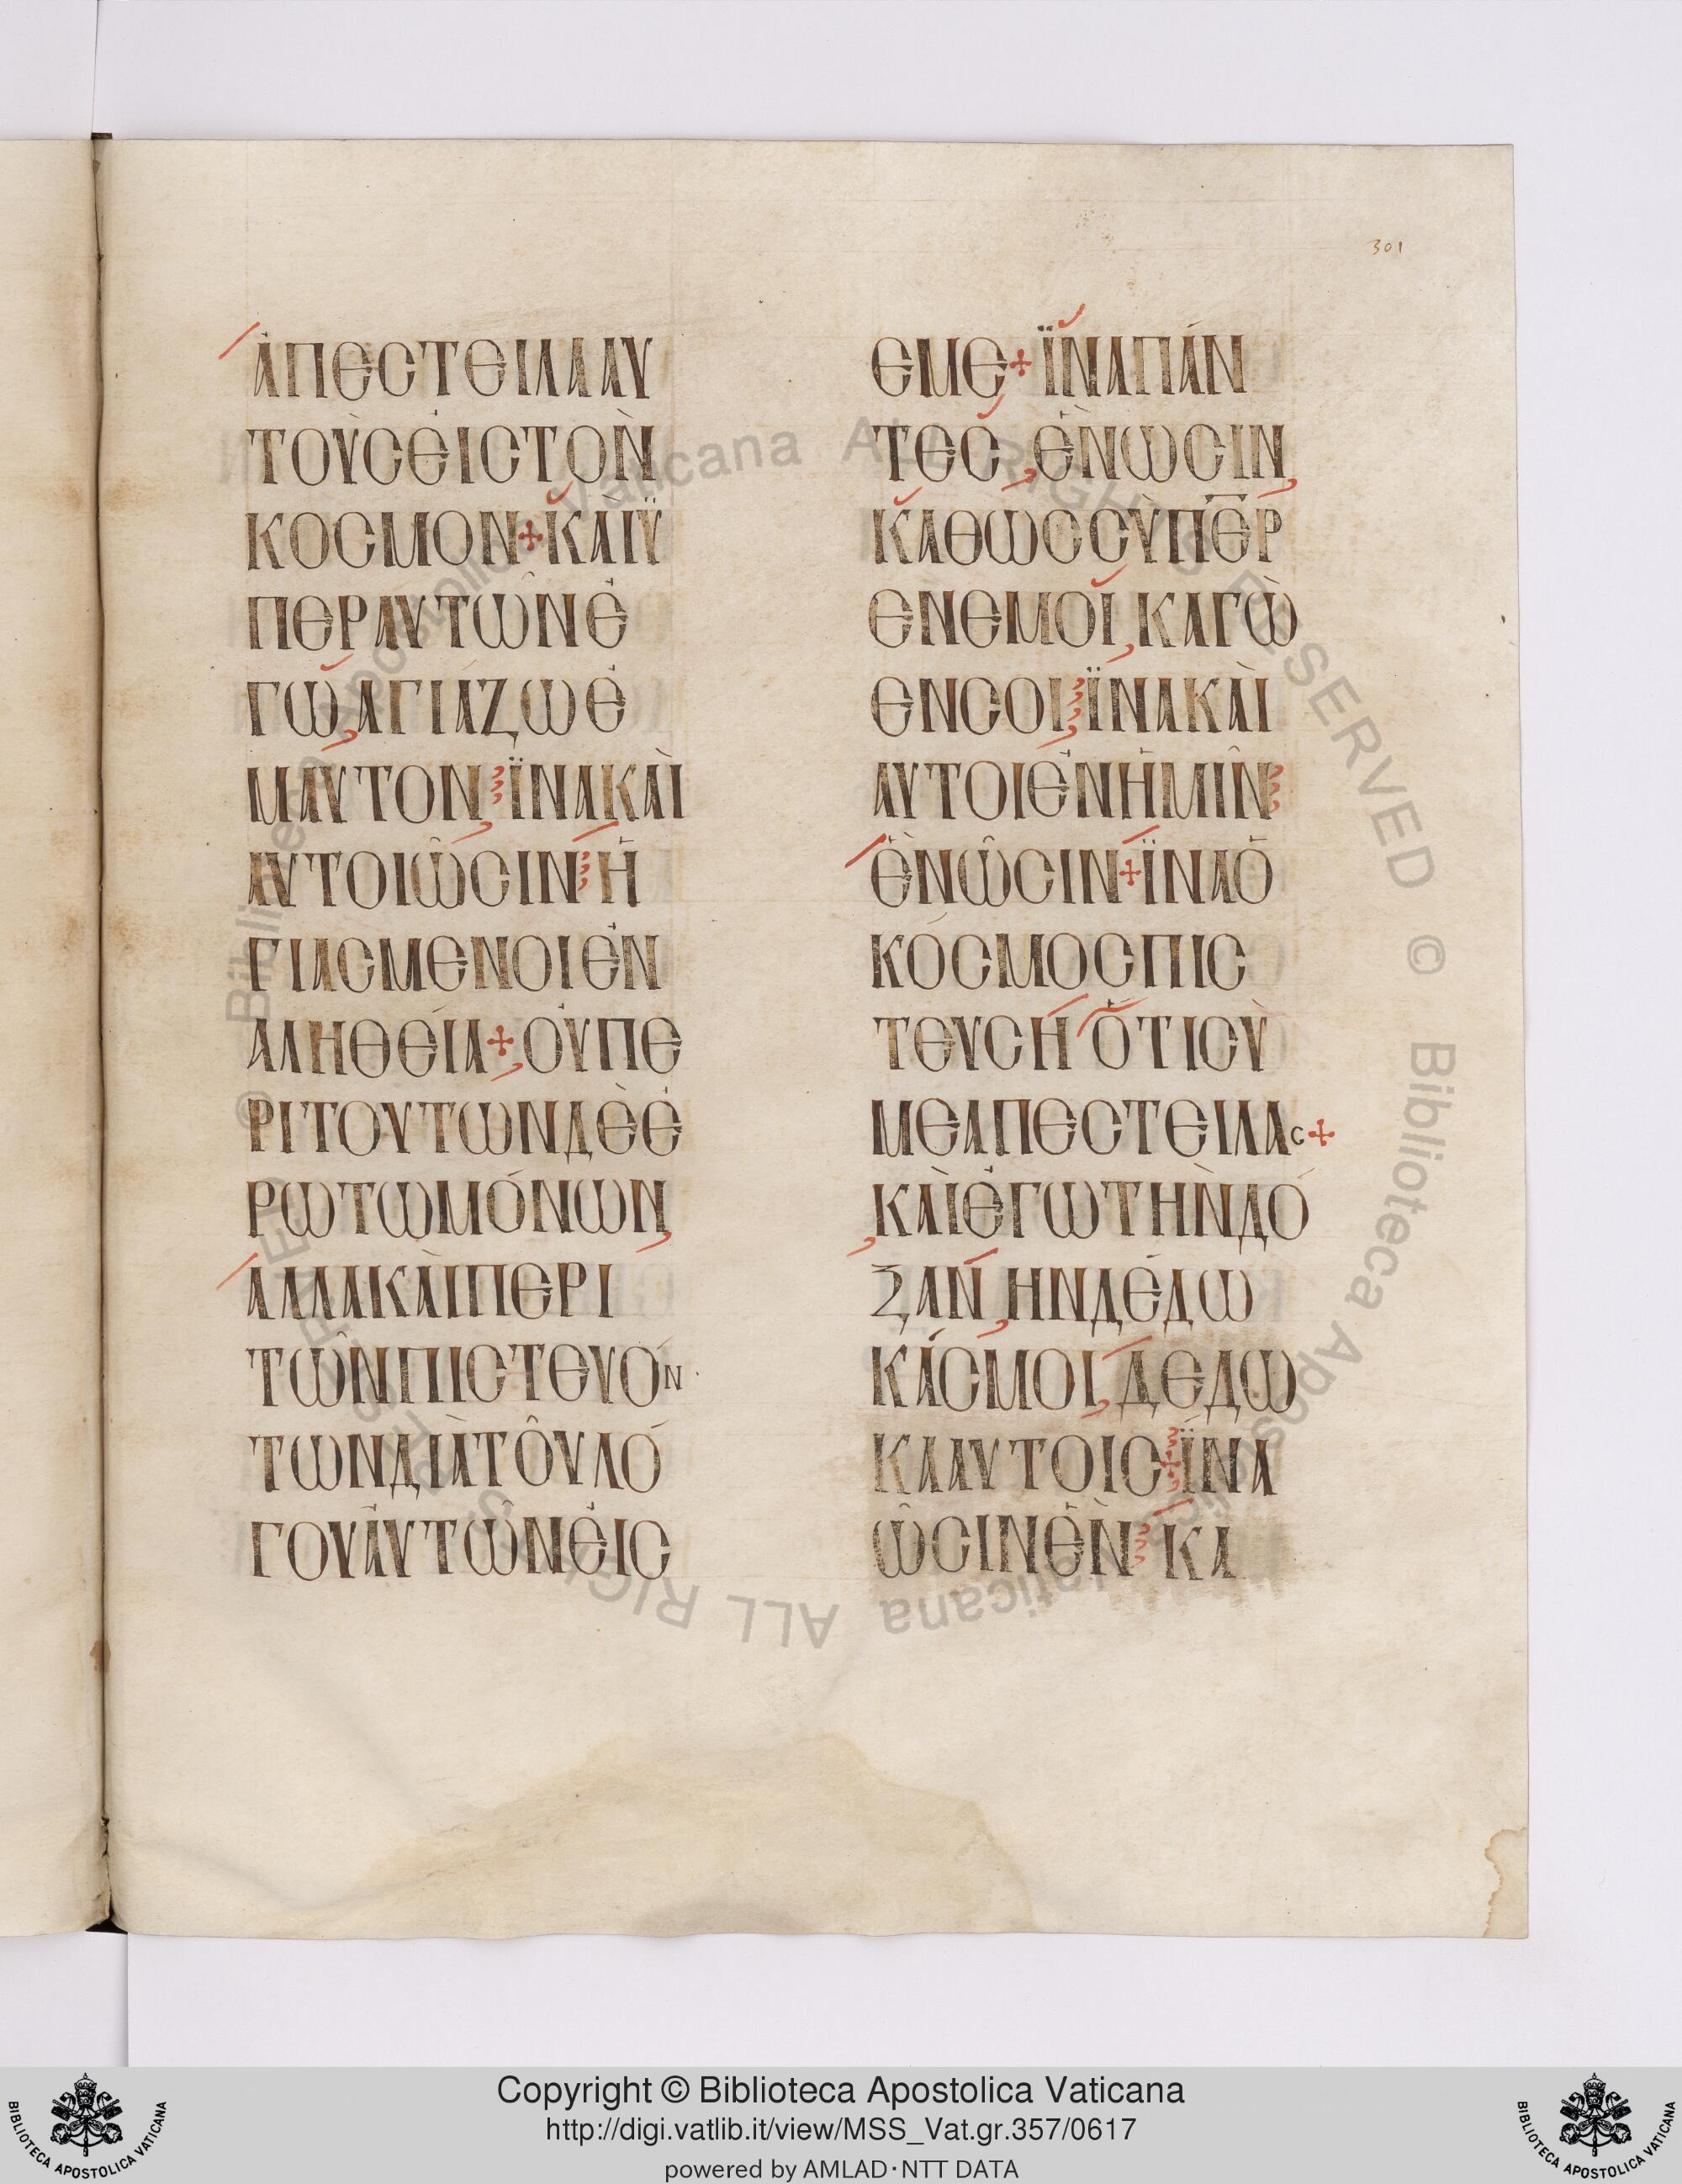 301
ἈΠΕСΤΕΙΛΑΑΥ
ΤΟῪСἘΙСΤῸΝ
ΚΟСΜΟΝ+ΚᾺΙΫ
ΠΕΡΑΥΤΩ͂ΝἘ
ΓΩ,ΑΓΙΆΖΩἘ
ΜΑΥΤΟΝ ΪΝΑΚᾺΙ
ΑΥΤΟΙΩ͂СΙΝ Ἡ
ΓΙΑСΜΕΝΟΙἘΝ
ΑΛΗΘΕΊΑ+ΟΥ̓ΠΕ
ΡΙΤΟΥΤΩΝΔῈἘ
ΡΩΤΩΜΌΝΩΝ,
ΑΛΛΑΚᾺΙΠΕΡΙ
ΤΩ͂ΝΠΙСΤΕΥΌΝ
ΤΩΝΔΙᾺΤΟ͂ΥΛΌ
ΓΟΥἈΥΤΩ͂ΝἘΙС
ΕΜΕ+ΪΝΑΠΆΝ
ΤΕС,ἛΝΩСΙΝ,
ΚΑΘΩССῪΠ̅Ε̅Ρ
ΕΝΕΜΟΙ,ΚΑΓῺ
ΕΝСΟΙ ΪΝΑΚᾺΙ
ΑΥΤΟΙἘΝἩΜΙ͂Ν
ἛΝΩ͂СΙΝ+ΪΝΑὉ
ΚΌСΜΟСΠΙС
ΤΕΥСΗ ὍΤΙСῪ
ΜΕΑΠΕСΤΕΙΛΑС+
ΚᾺΙἘΓΩΤῊΝΔΌ
ΞΑΝ,ΗΝΔΈΔΩ
ΚΆСΜΟΙ,ΔΕΔΩ
ΚΑΑΥΤΟΙС+ΪΝΑ
Ω͂СΙΝἛΝ ΚΑ
Copyright © Biblioteca Apostolica Vaticana
http://digi.vatlib.it/view/MSS_Vat.gr.357/0617
powered by AMLAD·NTT DATA
BIBLIOTECA APOSTOLICA VATICANA
BIBLIOTECA APOSTOLICA VATICANA